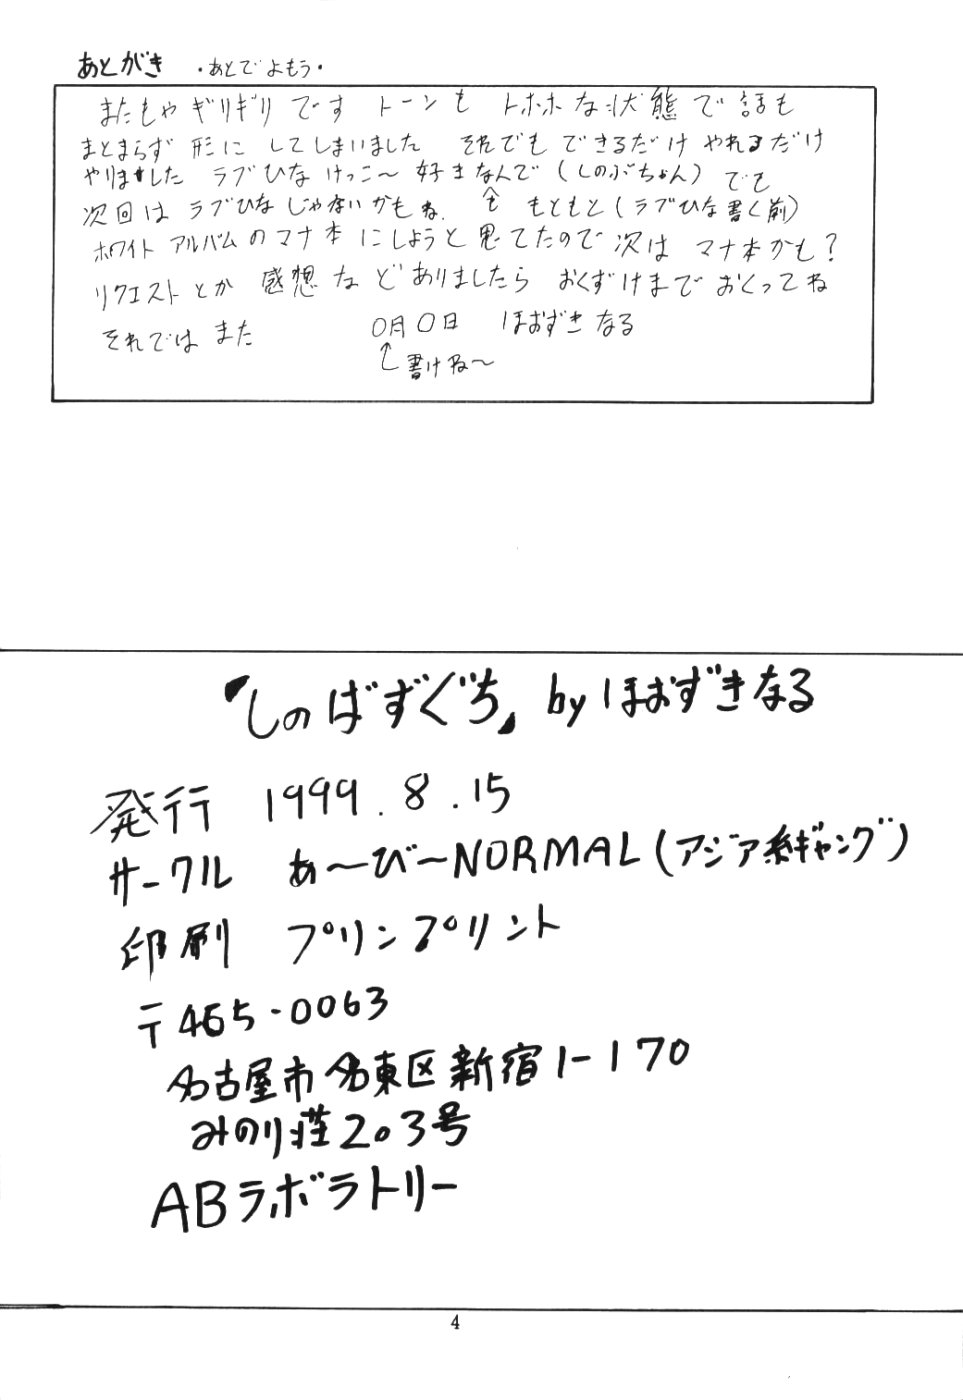 あとがき ・あとでよもう・
またもやギリギリです トーンも トホホな状態で話も
まとまらず 形に してしまいました それでも できるだけ やれるだけ
やりました ラブひな けっこ〜 好きなんで (しのぶちゃん) でも
次回は ラブひな じゃないかもね. へも もともと (ラブひな書く前)
ホワイトアルバムのマナ本にしようと思てたので次は マナ本かも?
リクエストとか 感想 など ありましたら おくずけまで おくってね
それでは また 0月0日 ほおずきなる
書けね〜
『しのばずぐち』 by ほおずきなる
発行 1999.8.15
サークル あ〜び〜NORMAL (アジア系ギャング)
印刷 プリンプリント
〒465-0063
名古屋市名東区新宿1-170
みのり荘203号
ABラボラトリー
4